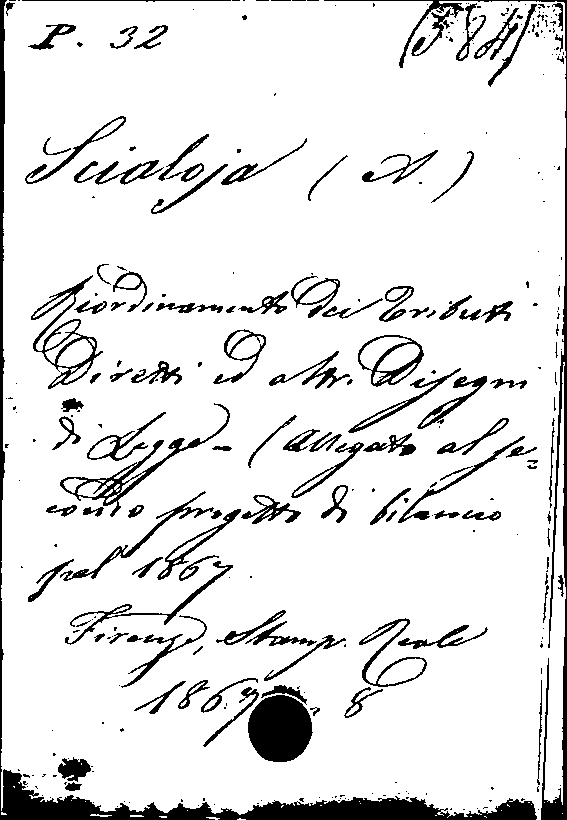 P. 32 (J 84)
Scialoja (A.)
Riordinamento dei Tributi
Diretti ed altri Disegni
di Legge - (Allegato al se=
condo progetto di bilancio
pel 1867
Firenze, Stamp. Reale
1867. 8